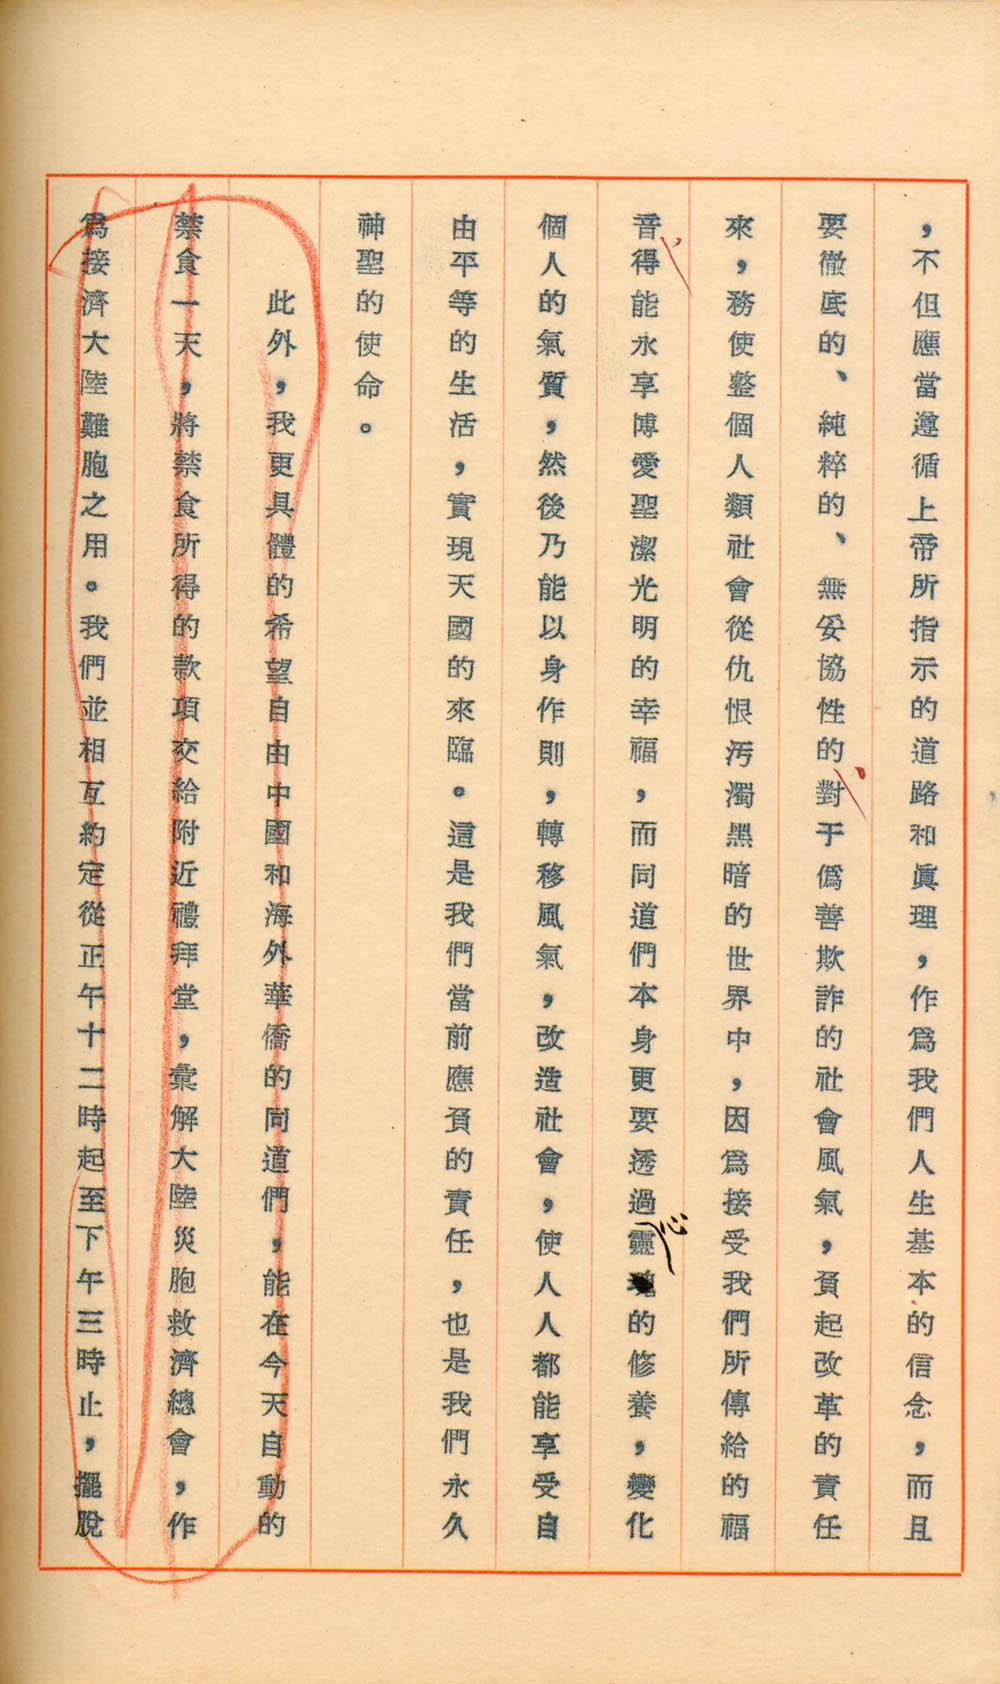 ，不但應當遵循上帝所指示的道路和眞理，作爲我們人生基本的信念，而且
要徹底的、純粹的、無妥協性的、對于僞善欺詐的社會風氣，負起改革的責任
來，務使整個人類社會從仇恨污濁黑暗的世界中，因爲接受我們所傳給的福
音、得能永享博愛聖潔光明的幸福，而同道們本身更要透過心靈的修養，變化
個人的氣質，然後乃能以身作則，轉移風氣，改造社會，使人人都能享受自
由平等的生活，實現天國的來臨。這是我們當前應負的責任，也是我們永久
神聖的使命。
此外，我更具體的希望自由中國和海外華僑的同道們，能在今天自動的
禁食一天，將禁食所得的款項交給附近禮拜堂，彙解大陸災胞救濟總會，作
爲接濟大陸難胞之用。我們並相互約定從正午十二時起至下午三時止，擺脫